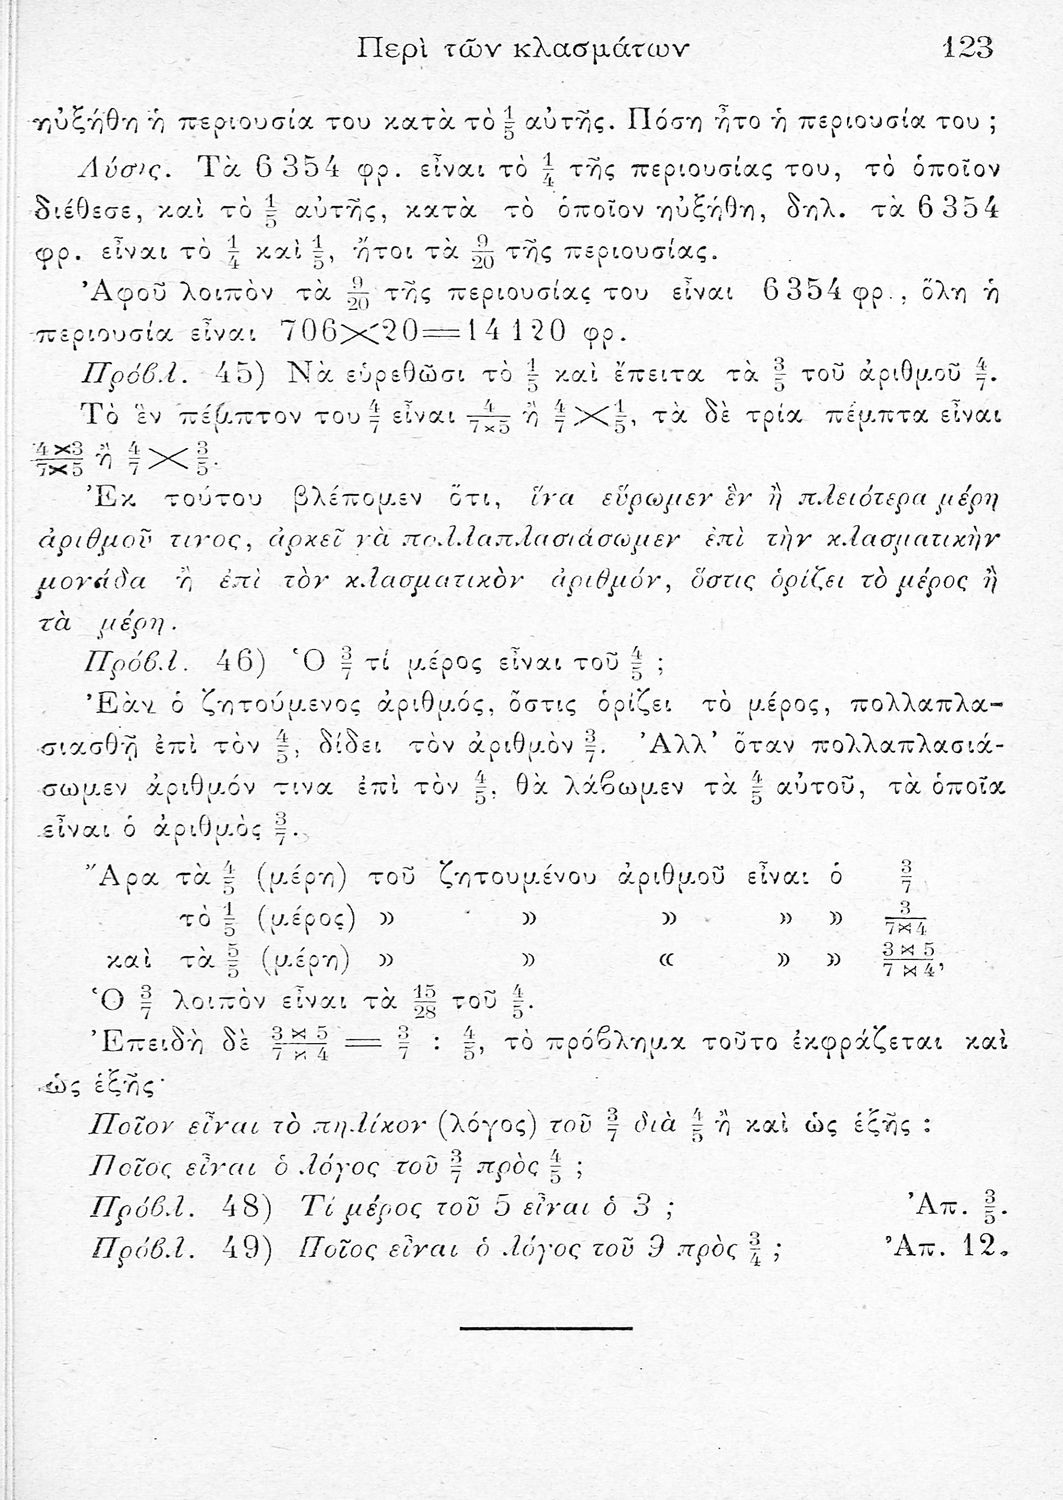 Περὶ τῶν κλασμάτων 123
ηὐξήθη ἡ περιουσία του κατὰ τὸ 1/5 αὐτῆς. Πόση ἦτο ἡ περιουσία του ;
Λύσις. Τὰ 6 354 φρ. εἶναι τὸ 1/4 τῆς περιουσίας του, τὸ ὁποῖον
διέθεσε, καὶ τὸ 1/5 αὐτῆς, κατὰ τὸ ὁποῖον ηὐξήθη, δηλ. τὰ 6 354
φρ. εἶναι τὸ 1/4 καὶ 1/5, ἤτοι τὰ 9/20 τῆς περιουσίας.
Ἀφοῦ λοιπὸν τὰ 9/20 τῆς περιουσίας του εἶναι 6 354 φρ., ὅλη ἡ
περιουσία εἶναι 706×20=14 120 φρ.
Πρόβλ. 45) Νὰ εὑρεθῶσι τὸ 1/5 καὶ ἔπειτα τὰ 3/5 τοῦ ἀριθμοῦ 4/7.
Τὸ ἓν πέμπτον του 4/7 εἶναι 4/7×5 ἢ 4/7×1/5, τὰ δὲ τρία πέμπτα εἶναι
4×3/7×5 ἢ 4/7×3/5.
Ἐκ τούτου βλέπομεν ὅτι, ἵνα εὕρωμεν ἓν ἢ πλειότερα μέρη
ἀριθμοῦ τινος, ἀρκεῖ νὰ πολλαπλασιάσωμεν ἐπὶ τὴν κλασματικὴν
μονάδα ἢ ἐπὶ τὸν κλασματικὸν ἀριθμόν, ὅστις ὁρίζει τὸ μέρος ἢ
τὰ μέρη.
Πρόβλ. 46) Ὁ 3/7 τί μέρος εἶναι τοῦ 4/5 ;
Ἐὰν ὁ ζητούμενος ἀριθμός, ὅστις ὁρίζει τὸ μέρος, πολλαπλα-
σιασθῇ ἐπὶ τὸν 4/5, δίδει τὸν ἀριθμὸν 3/7. Ἀλλ' ὅταν πολλαπλασιά-
σωμεν ἀριθμόν τινα ἐπὶ τὸν 4/5, θὰ λάβωμεν τὰ 4/5 αὐτοῦ, τὰ ὁποῖα
εἶναι ὁ ἀριθμὸς 3/7.
Ἄρα τὰ 4/5 (μέρη) τοῦ ζητουμένου ἀριθμοῦ εἶναι ὁ 3/7
τὸ 1/5 (μέρος) » » » » » 3/7×4
καὶ τὰ 5/5 (μέρη) » » « » » 3×5/7×4,
Ὁ 3/7 λοιπὸν εἶναι τὰ 15/28 τοῦ 4/5.
Ἐπειδὴ δὲ 3×5/7×4 = 3/7 : 4/5, τὸ πρόβλημα τοῦτο ἐκφράζεται καὶ
ὡς ἑξῆς·
Ποῖον εἶναι τὸ πηλίκον (λόγος) τοῦ 3/7 διὰ 4/5 ἢ καὶ ὡς ἑξῆς :
Ποῖος εἶναι ὁ λόγος τοῦ 3/7 πρὸς 4/5 ;
Πρόβλ. 48) Τί μέρος τοῦ 5 εἶναι ὁ 3 ; Ἀπ. 3/5.
Πρόβλ. 49) Ποῖος εἶναι ὁ λόγος τοῦ 9 πρὸς 3/4 ; Ἀπ. 12.